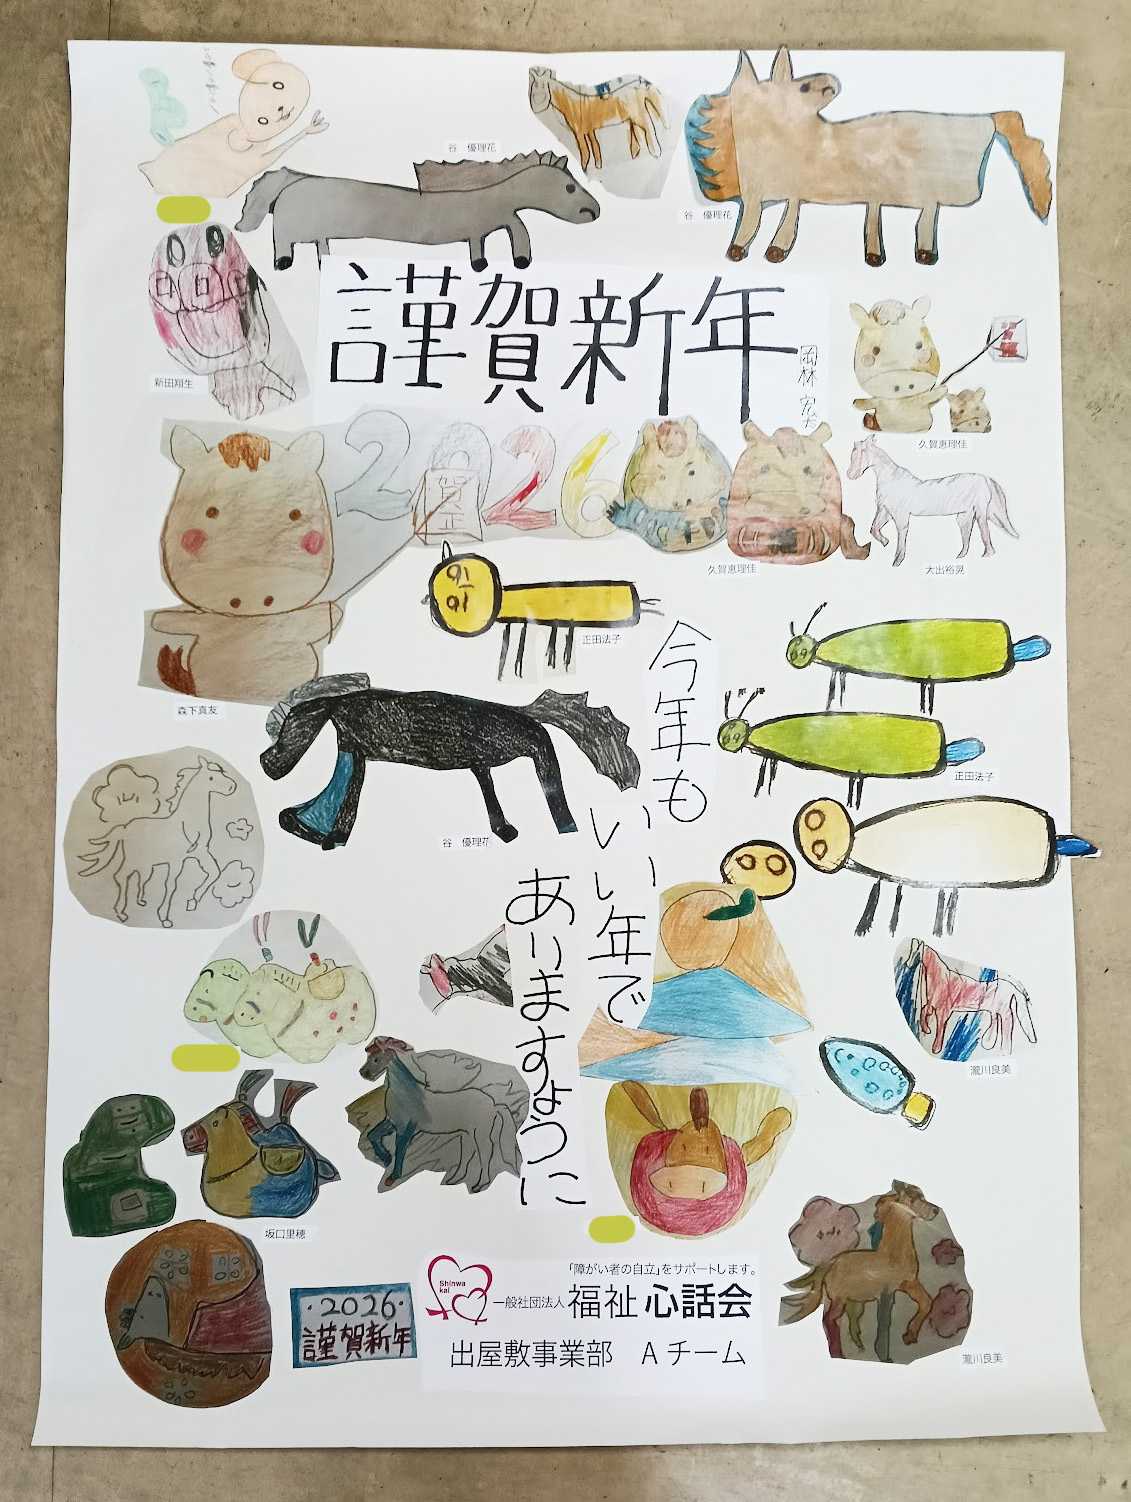 谷　優理花
谷　優理花
謹賀新年
岡林
新田翔生
久賀恵理佳
2026
賀正
久賀恵理佳
大出裕晃
正田法子
森下真友
今年も
いい年で
ありますように
正田法子
谷　優理花
瀧川良美
坂口里穂
・2026・
謹賀新年
Shinwa
kai
「障がい者の自立」をサポートします。
一般社団法人 福祉 心話会
出屋敷事業部　Aチーム
瀧川良美